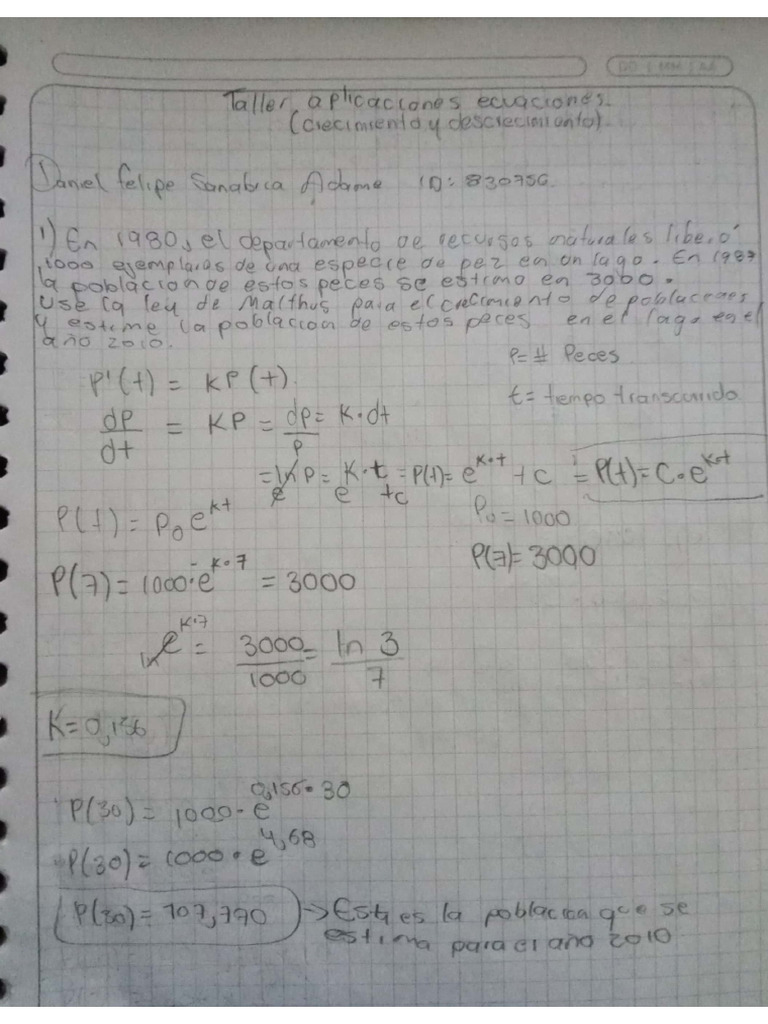 DD / MM / AA
Taller aplicaciones ecuaciones.
(crecimiento y descrecimiento).
Daniel Felipe Sanabria Adame ID: 830756
1) En 1980, el departamento de recursos naturales liberó
1000 ejemplares de una especie de pez en un lago. En 1987
la poblacion de estos peces se estimo en 3000.
Use la ley de Malthus para el crecimiento de poblaciones
y estime la poblacion de estos peces en el lago en el
año 2010.
P = # Peces
P'(t) = KP(t)
t = tempo transcurrido
dP/dt = KP = dP/P = K·dt
= ln P = K·t + c = P(t) = e^K·t + c = P(t) = C·e^K·t
e e
P(t) = P₀e^kt
P₀ = 1000
P(7) = 3000
P(7) = 1000·e^K·7 = 3000
ln e^K·7 = 3000/1000 = ln 3/7
K = 0,156
P(30) = 1000·e^0,156·30
P(30) = 1000·e^4,68
P(30) = 107,770 → Esta es la poblacion que se
estima para el año 2010